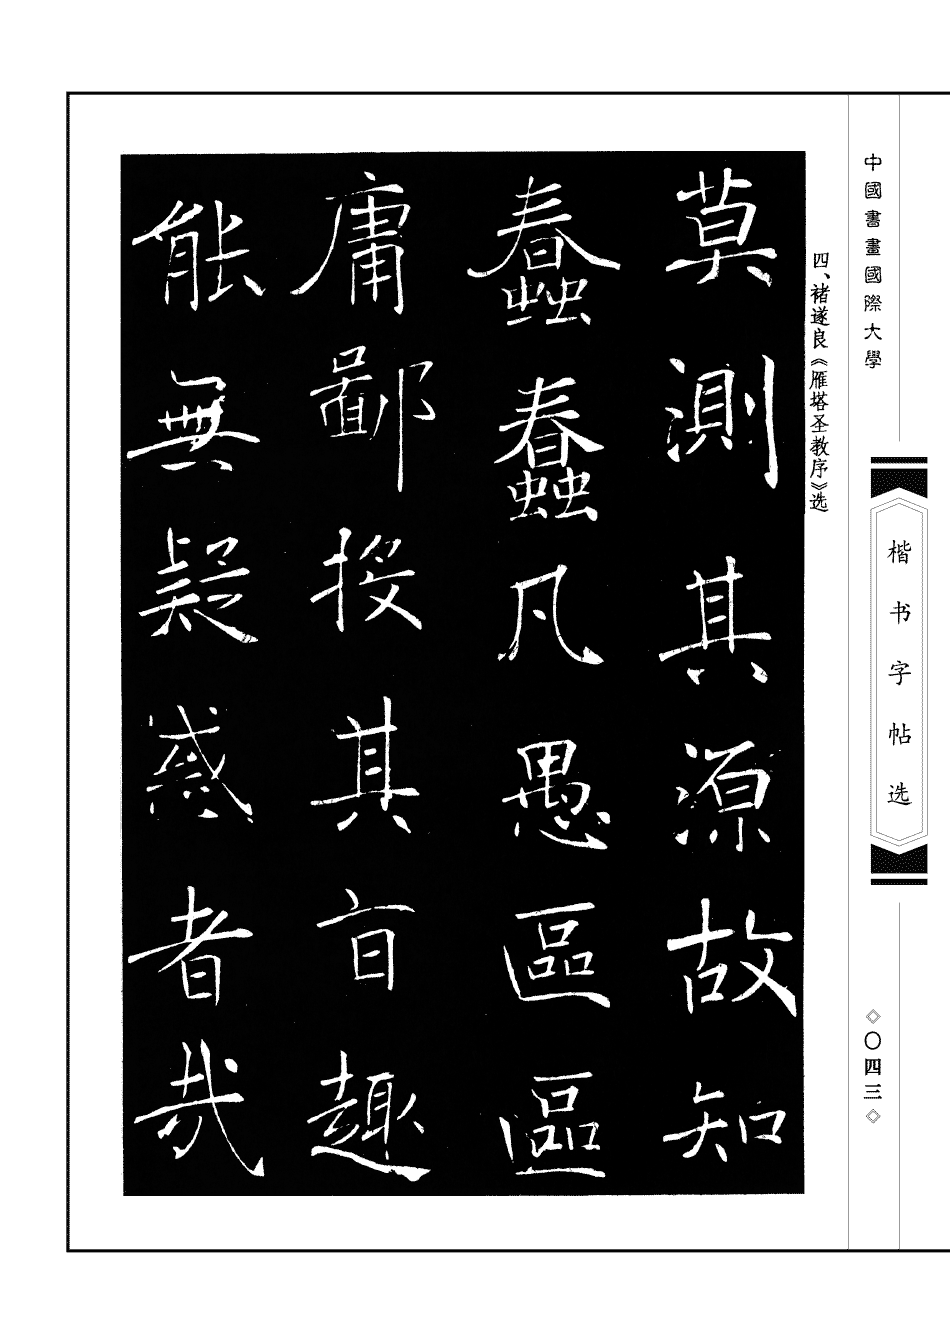 中國書畫國際大學
楷书字帖选
◇〇四三◇
四、褚遂良《雁塔圣教序》选
莫測其源故知
蠢蠢凡愚區區
庸鄙投其旨趣
能無疑惑者哉